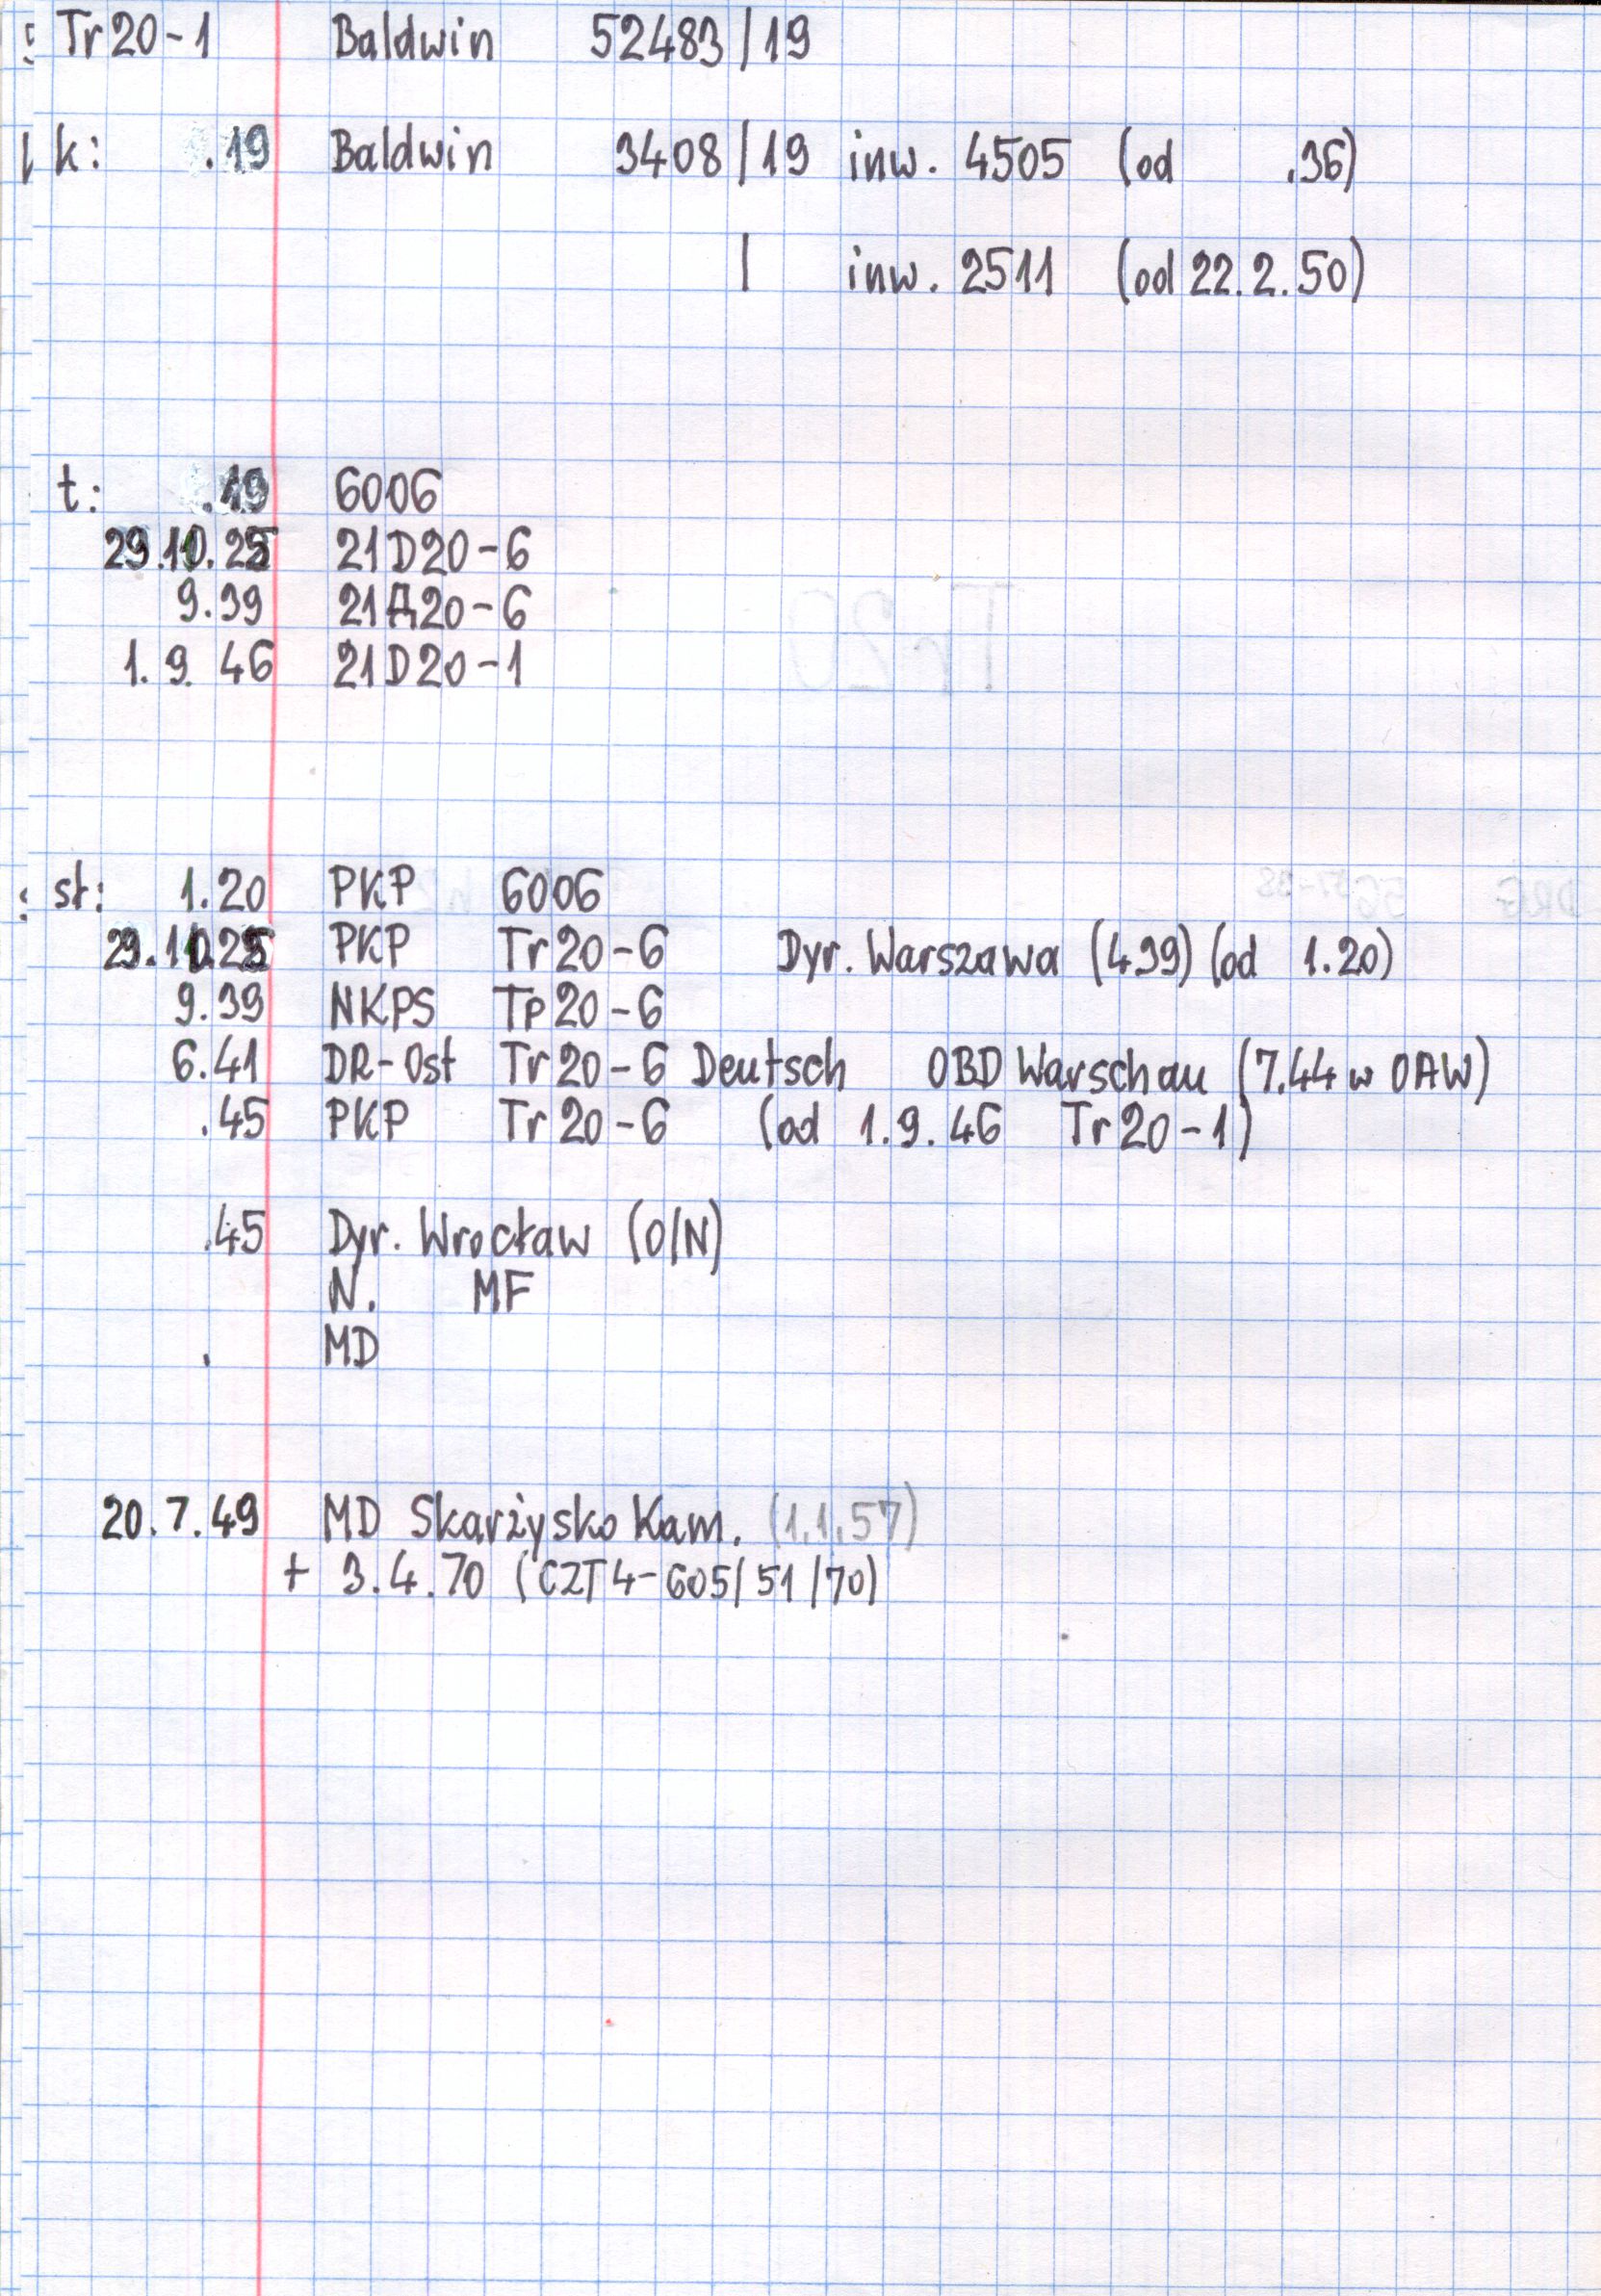 Tr20-1 Baldwin 52483/19
k: .19 Baldwin 3408/19 inw. 4505 (od .36)
| inw. 2511 (od 22.2.50)
t: .19 6006
29.10.25 21D20-6
9.39 21Д20-6
1.9.46 21D20-1
st: 1.20 PKP 6006
29.10.25 PKP Tr20-6 Dyr. Warszawa (4.39) (od 1.20)
9.39 NKPS Tp20-6
6.41 DR-Ost Tr20-6 Deutsch OBD Warschau (7.44 w OAW)
.45 PKP Tr20-6 (od 1.9.46 Tr20-1)
.45 Dyr. Wrocław (O/N)
N. MF
. MD
20.7.49 MD Skarżysko Kam. (1.1.57)
+ 3.4.70 (CZT4-605/51/70)